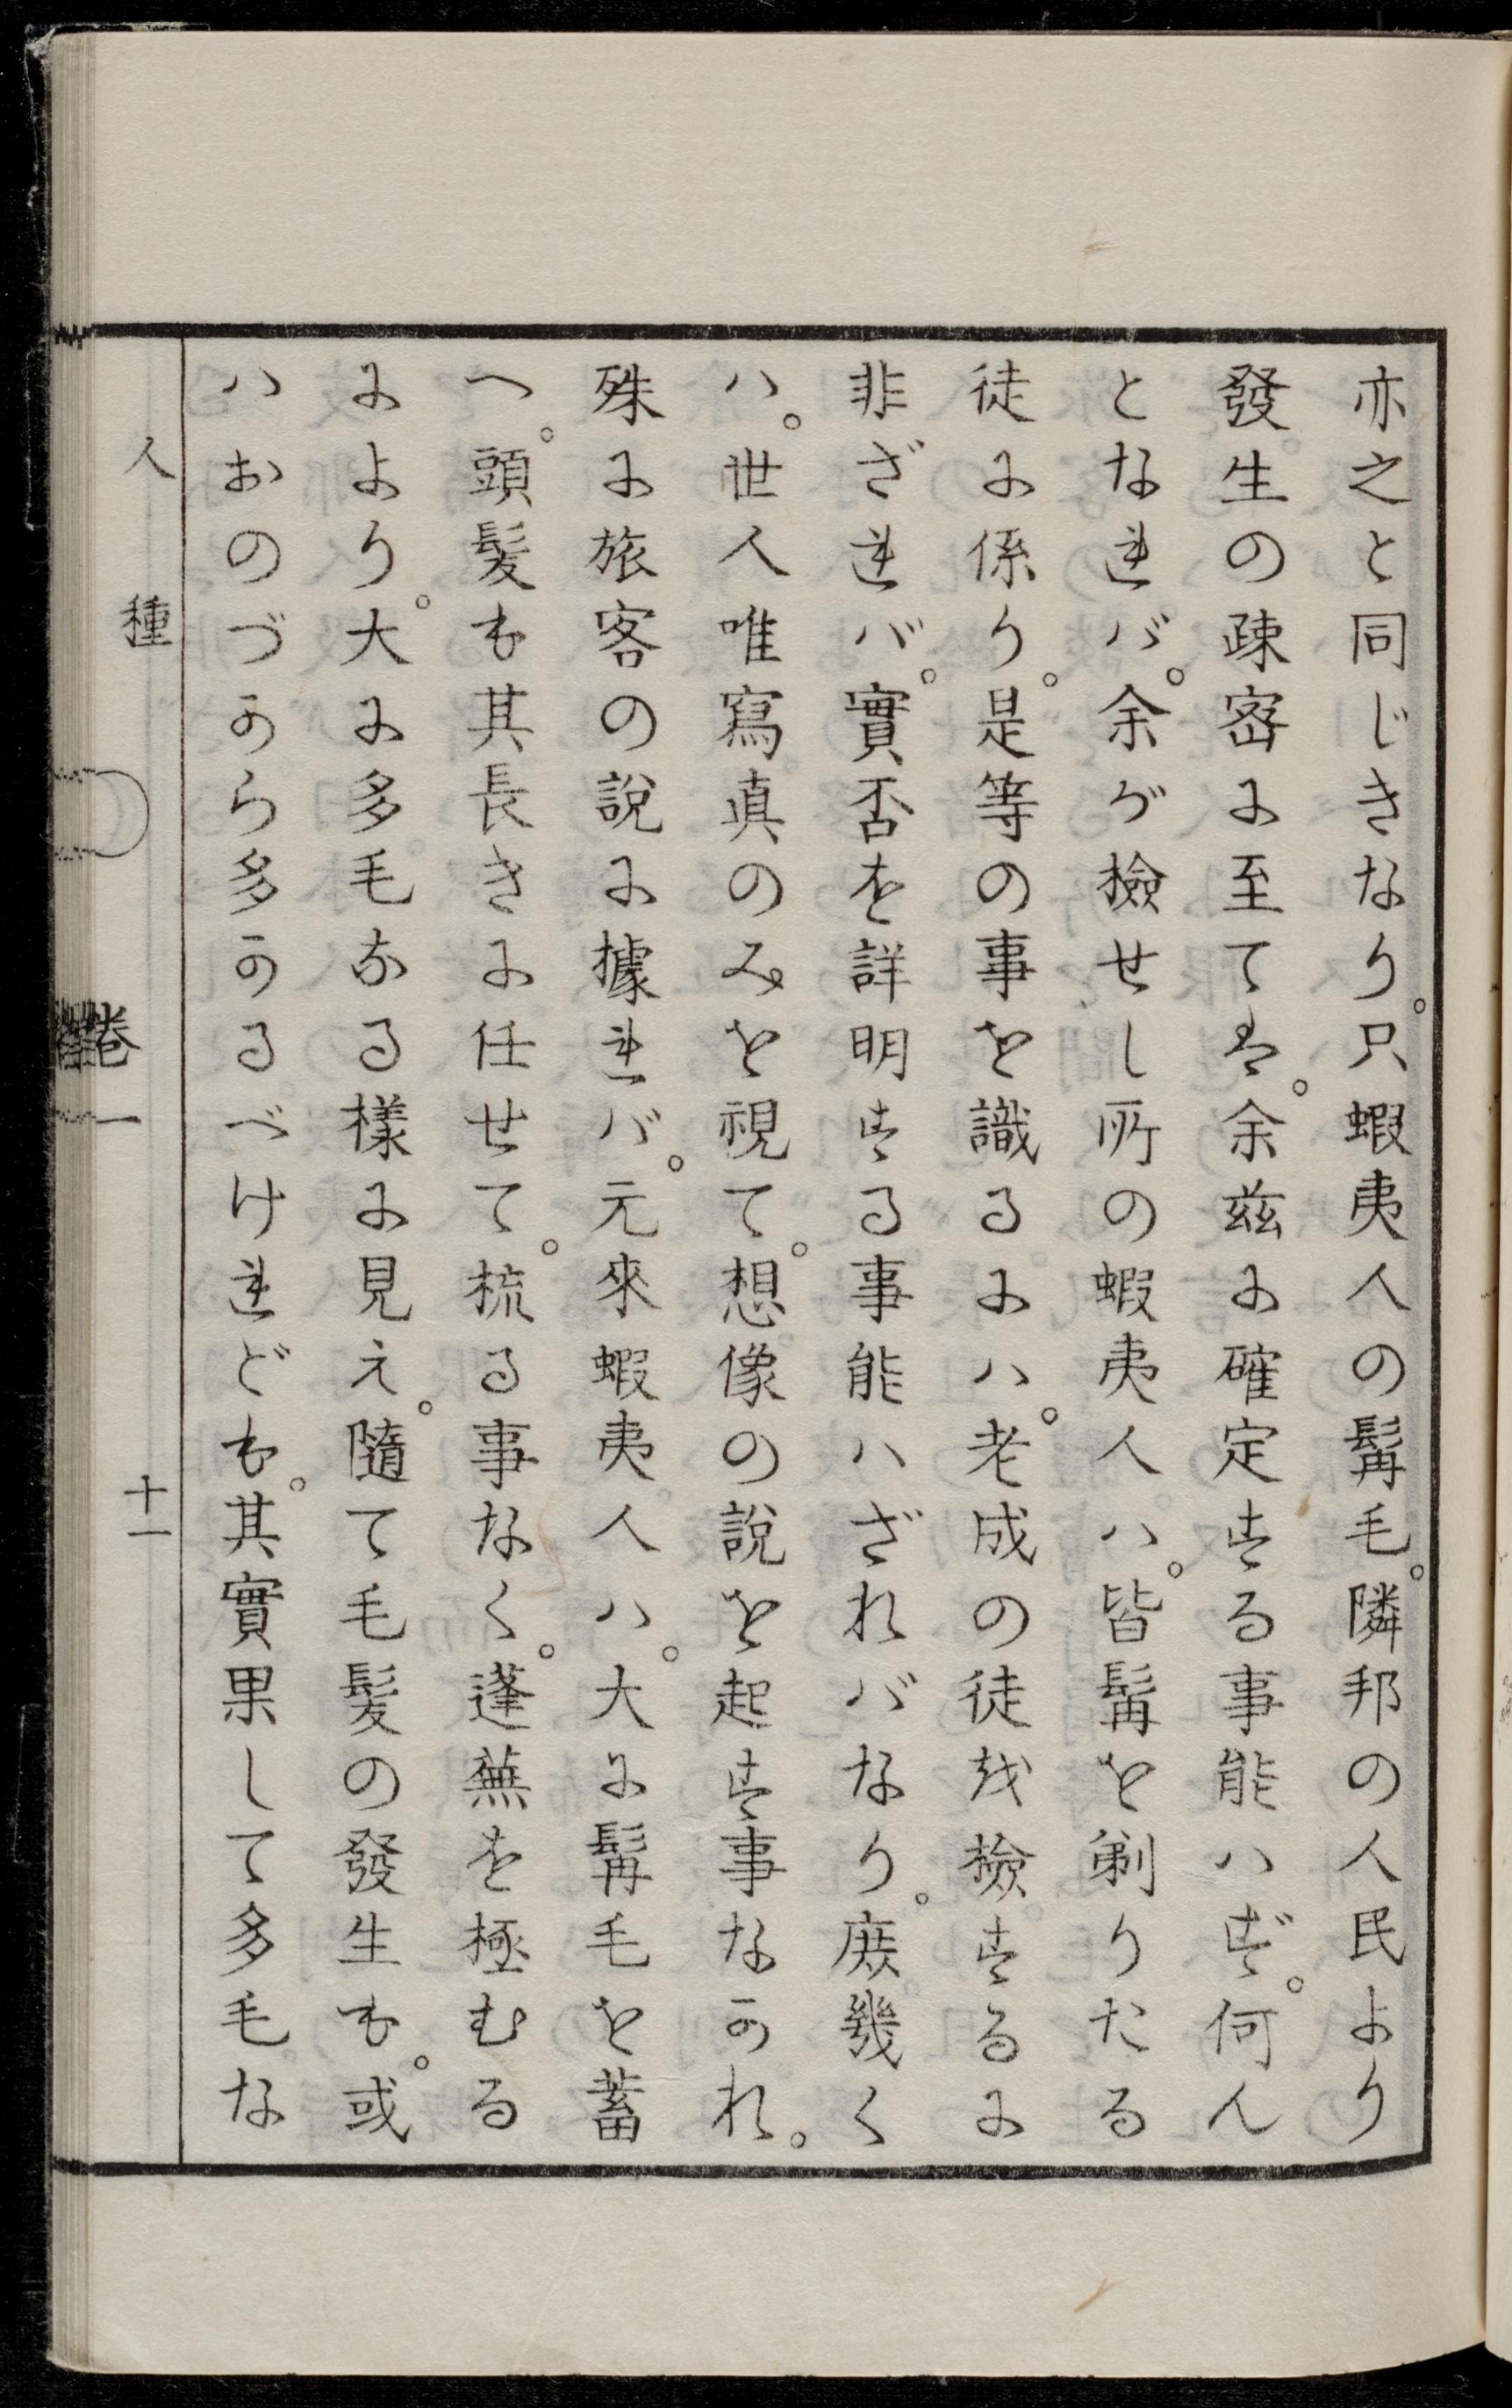 亦之と同じきなり。只蝦夷人の髯毛。隣邦の人民より
發生の疎密に至ては。余玆に確定する事能ハず。何ん
となれバ。余が檢せし所の蝦夷人ハ。皆髯を剃りたる
徒に係り。是等の事を識るにハ。老成の徒を檢するに
非ざれバ。實否を詳明する事能ハざれバなり。庶幾く
ハ。世人唯寫真のみを視て。想像の說を起す事なかれ。
殊に旅客の說に據れバ。元來蝦夷人ハ。大に髯毛を蓄
へ。頭髪も其長きに任せて。梳る事なく。蓬蕪を極むる
により。大に多毛なる樣に見え。隨て毛髪の發生も。或
ハおのづから多かるべけれども。其實果して多毛な
人種 卷一 十一